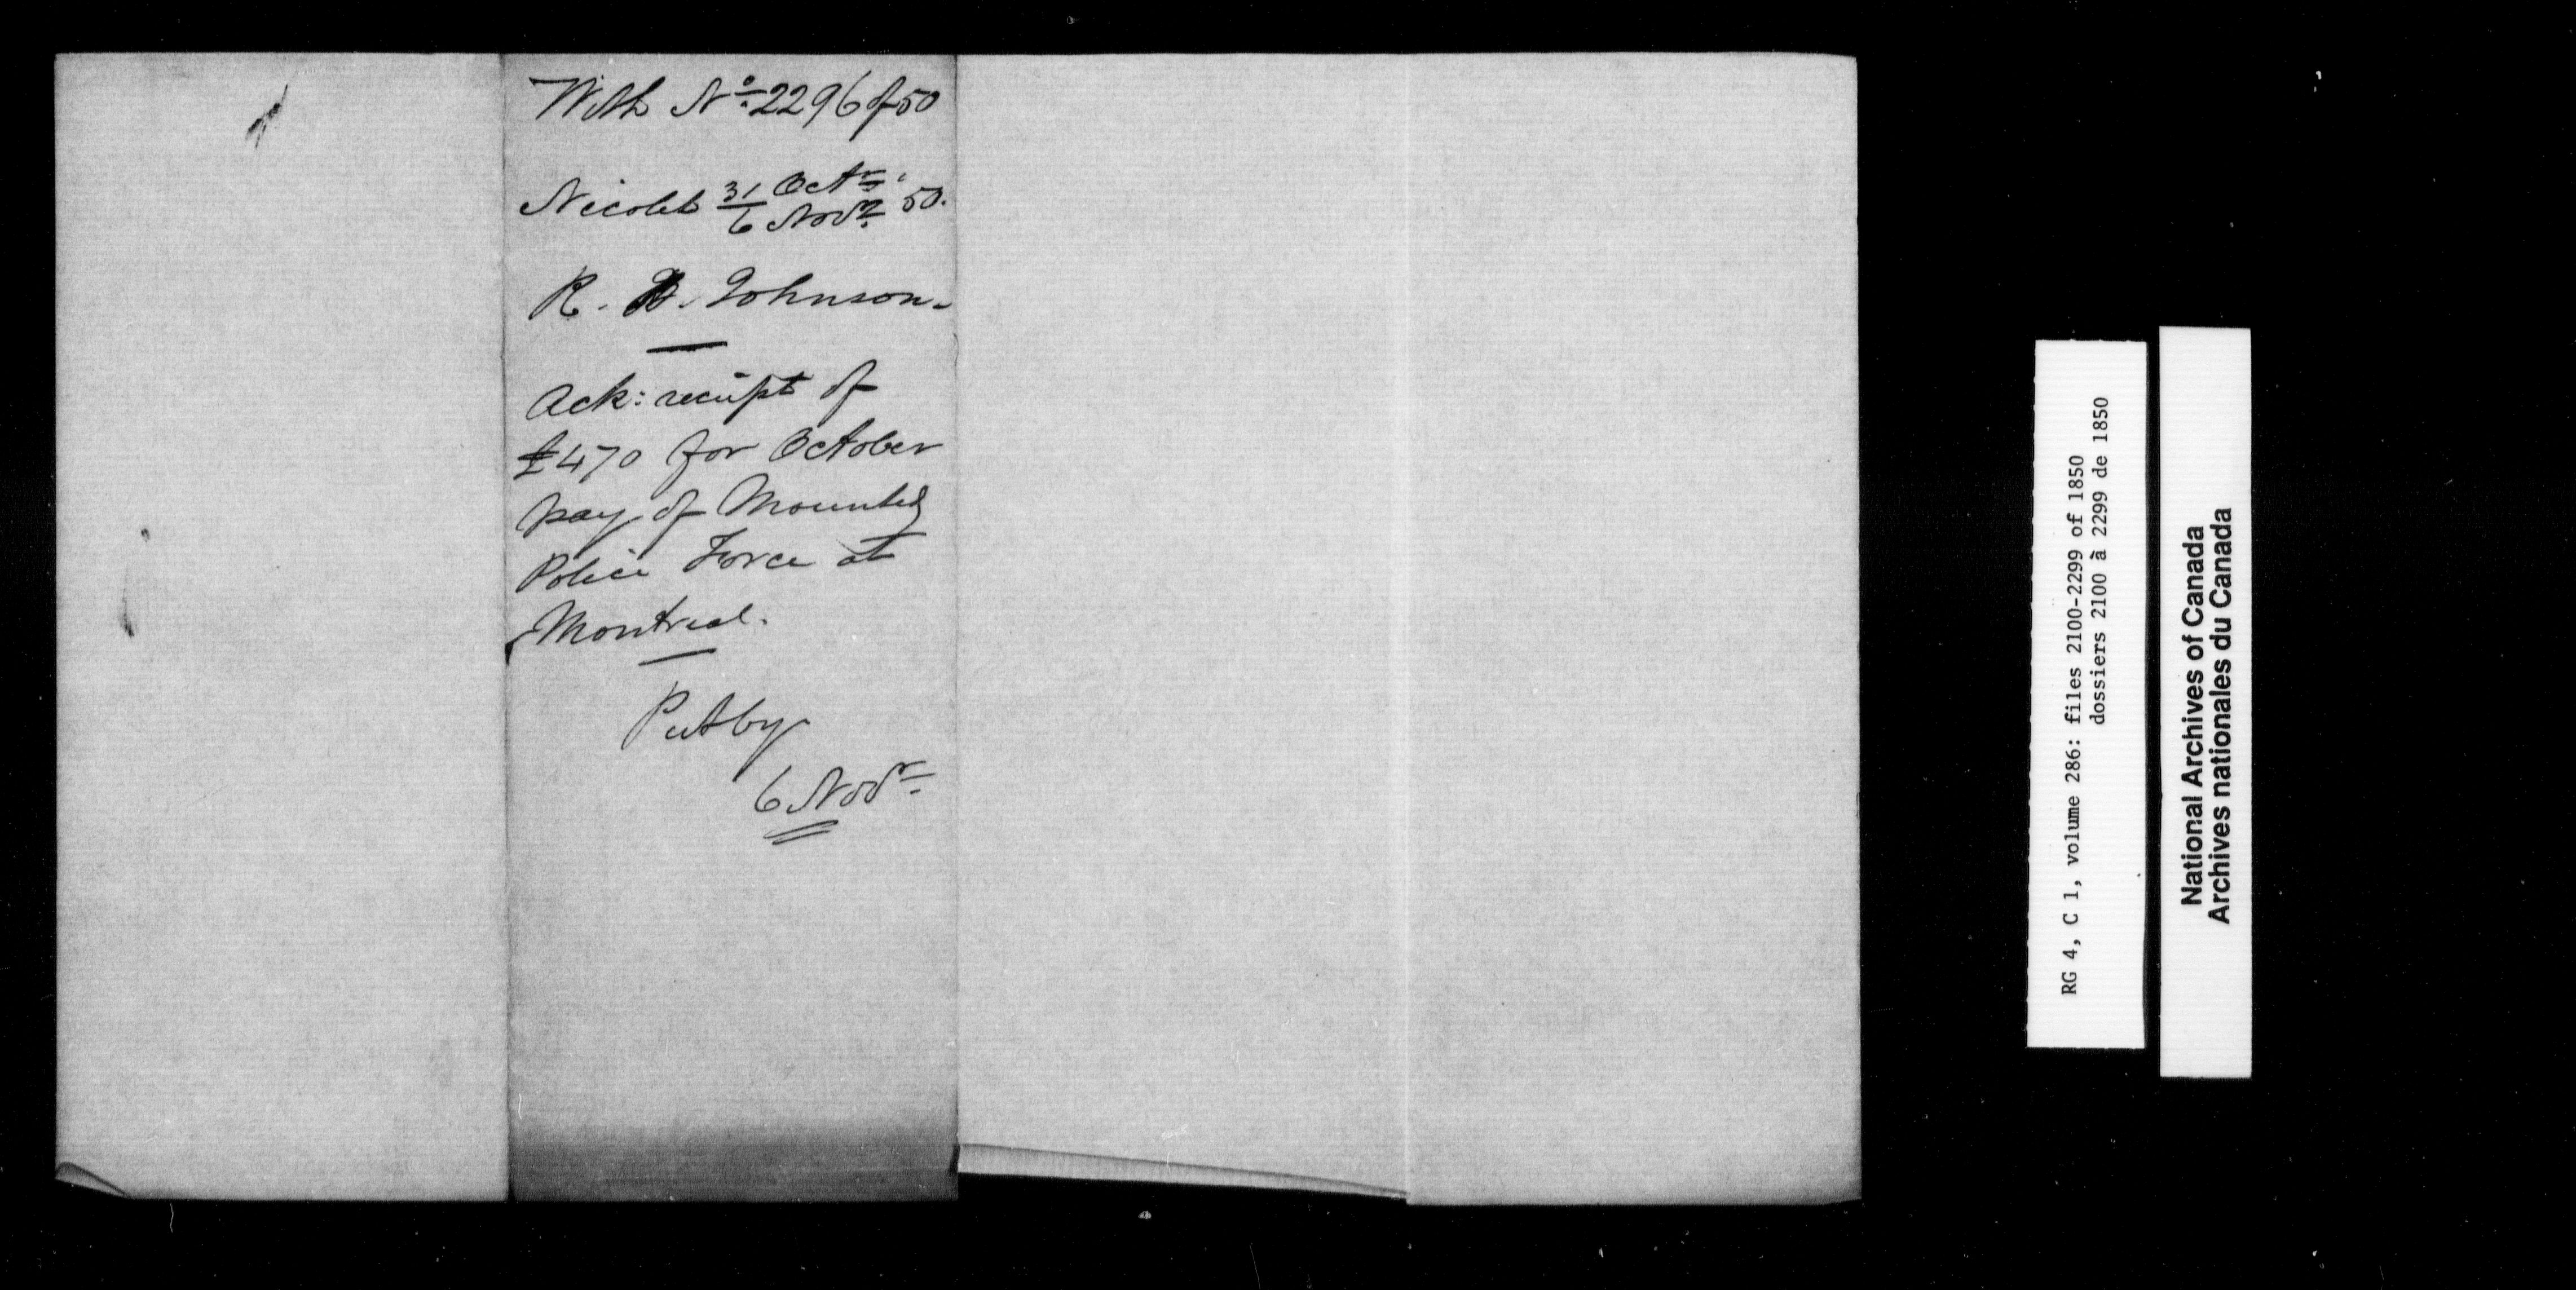 With No. 2296 of 50
Nicolet 31 Octr. 50.
6 Novr.
R. Johnson.
Ack: receipt of
£470 for October
pay of Mounted
Police Force at
Montreal.
Put by
6 Novr.
RG 4, C 1, volume 286: files 2100-2299 of 1850
dossiers 2100 à 2299 de 1850
National Archives of Canada
Archives nationales du Canada